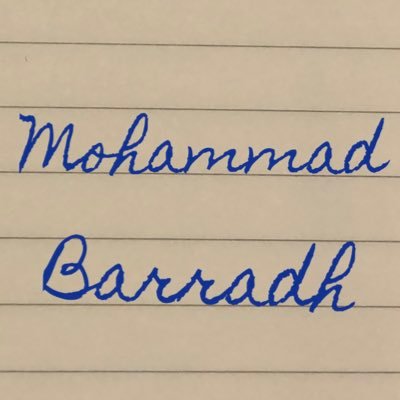 Mohammad
Barradh